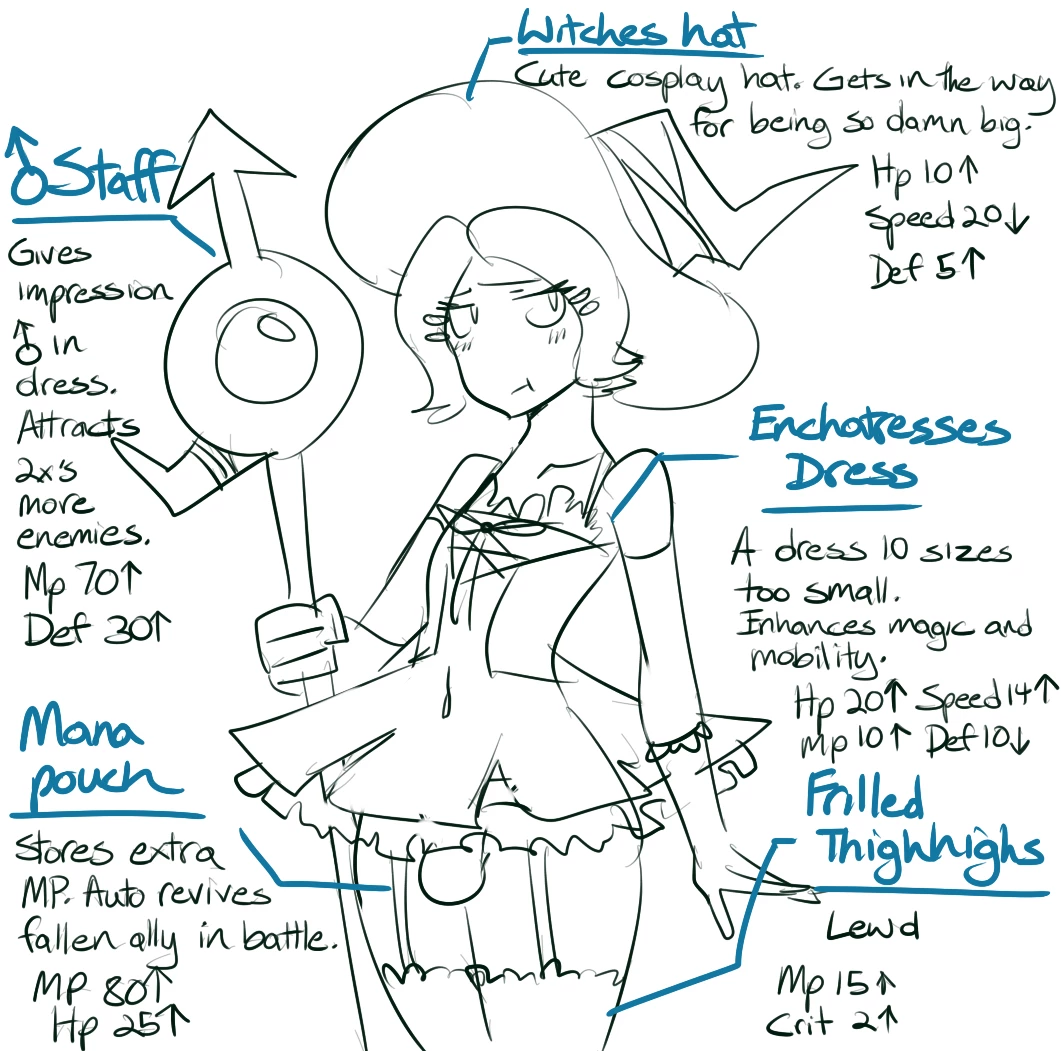 Witches hat
Cute cosplay hat. Gets in the way
for being so damn big.
Hp 10↑
Speed 20↓
Def 5↑
♂Staff
Gives
impression
♂ in
dress.
Attracts
2x's
more
enemies.
Mp 70↑
Def 30↑
Enchotresses
Dress
A dress 10 sizes
too small.
Enhances magic and
mobility.
Hp 20↑ Speed 14↑
Mp 10↑ Def 10↓
Mana
pouch
Stores extra
MP. Auto revives
fallen ally in battle.
MP 80↑
Hp 25↑
Frilled
Thighhighs
Lewd
Mp 15↑
Crit 2↑